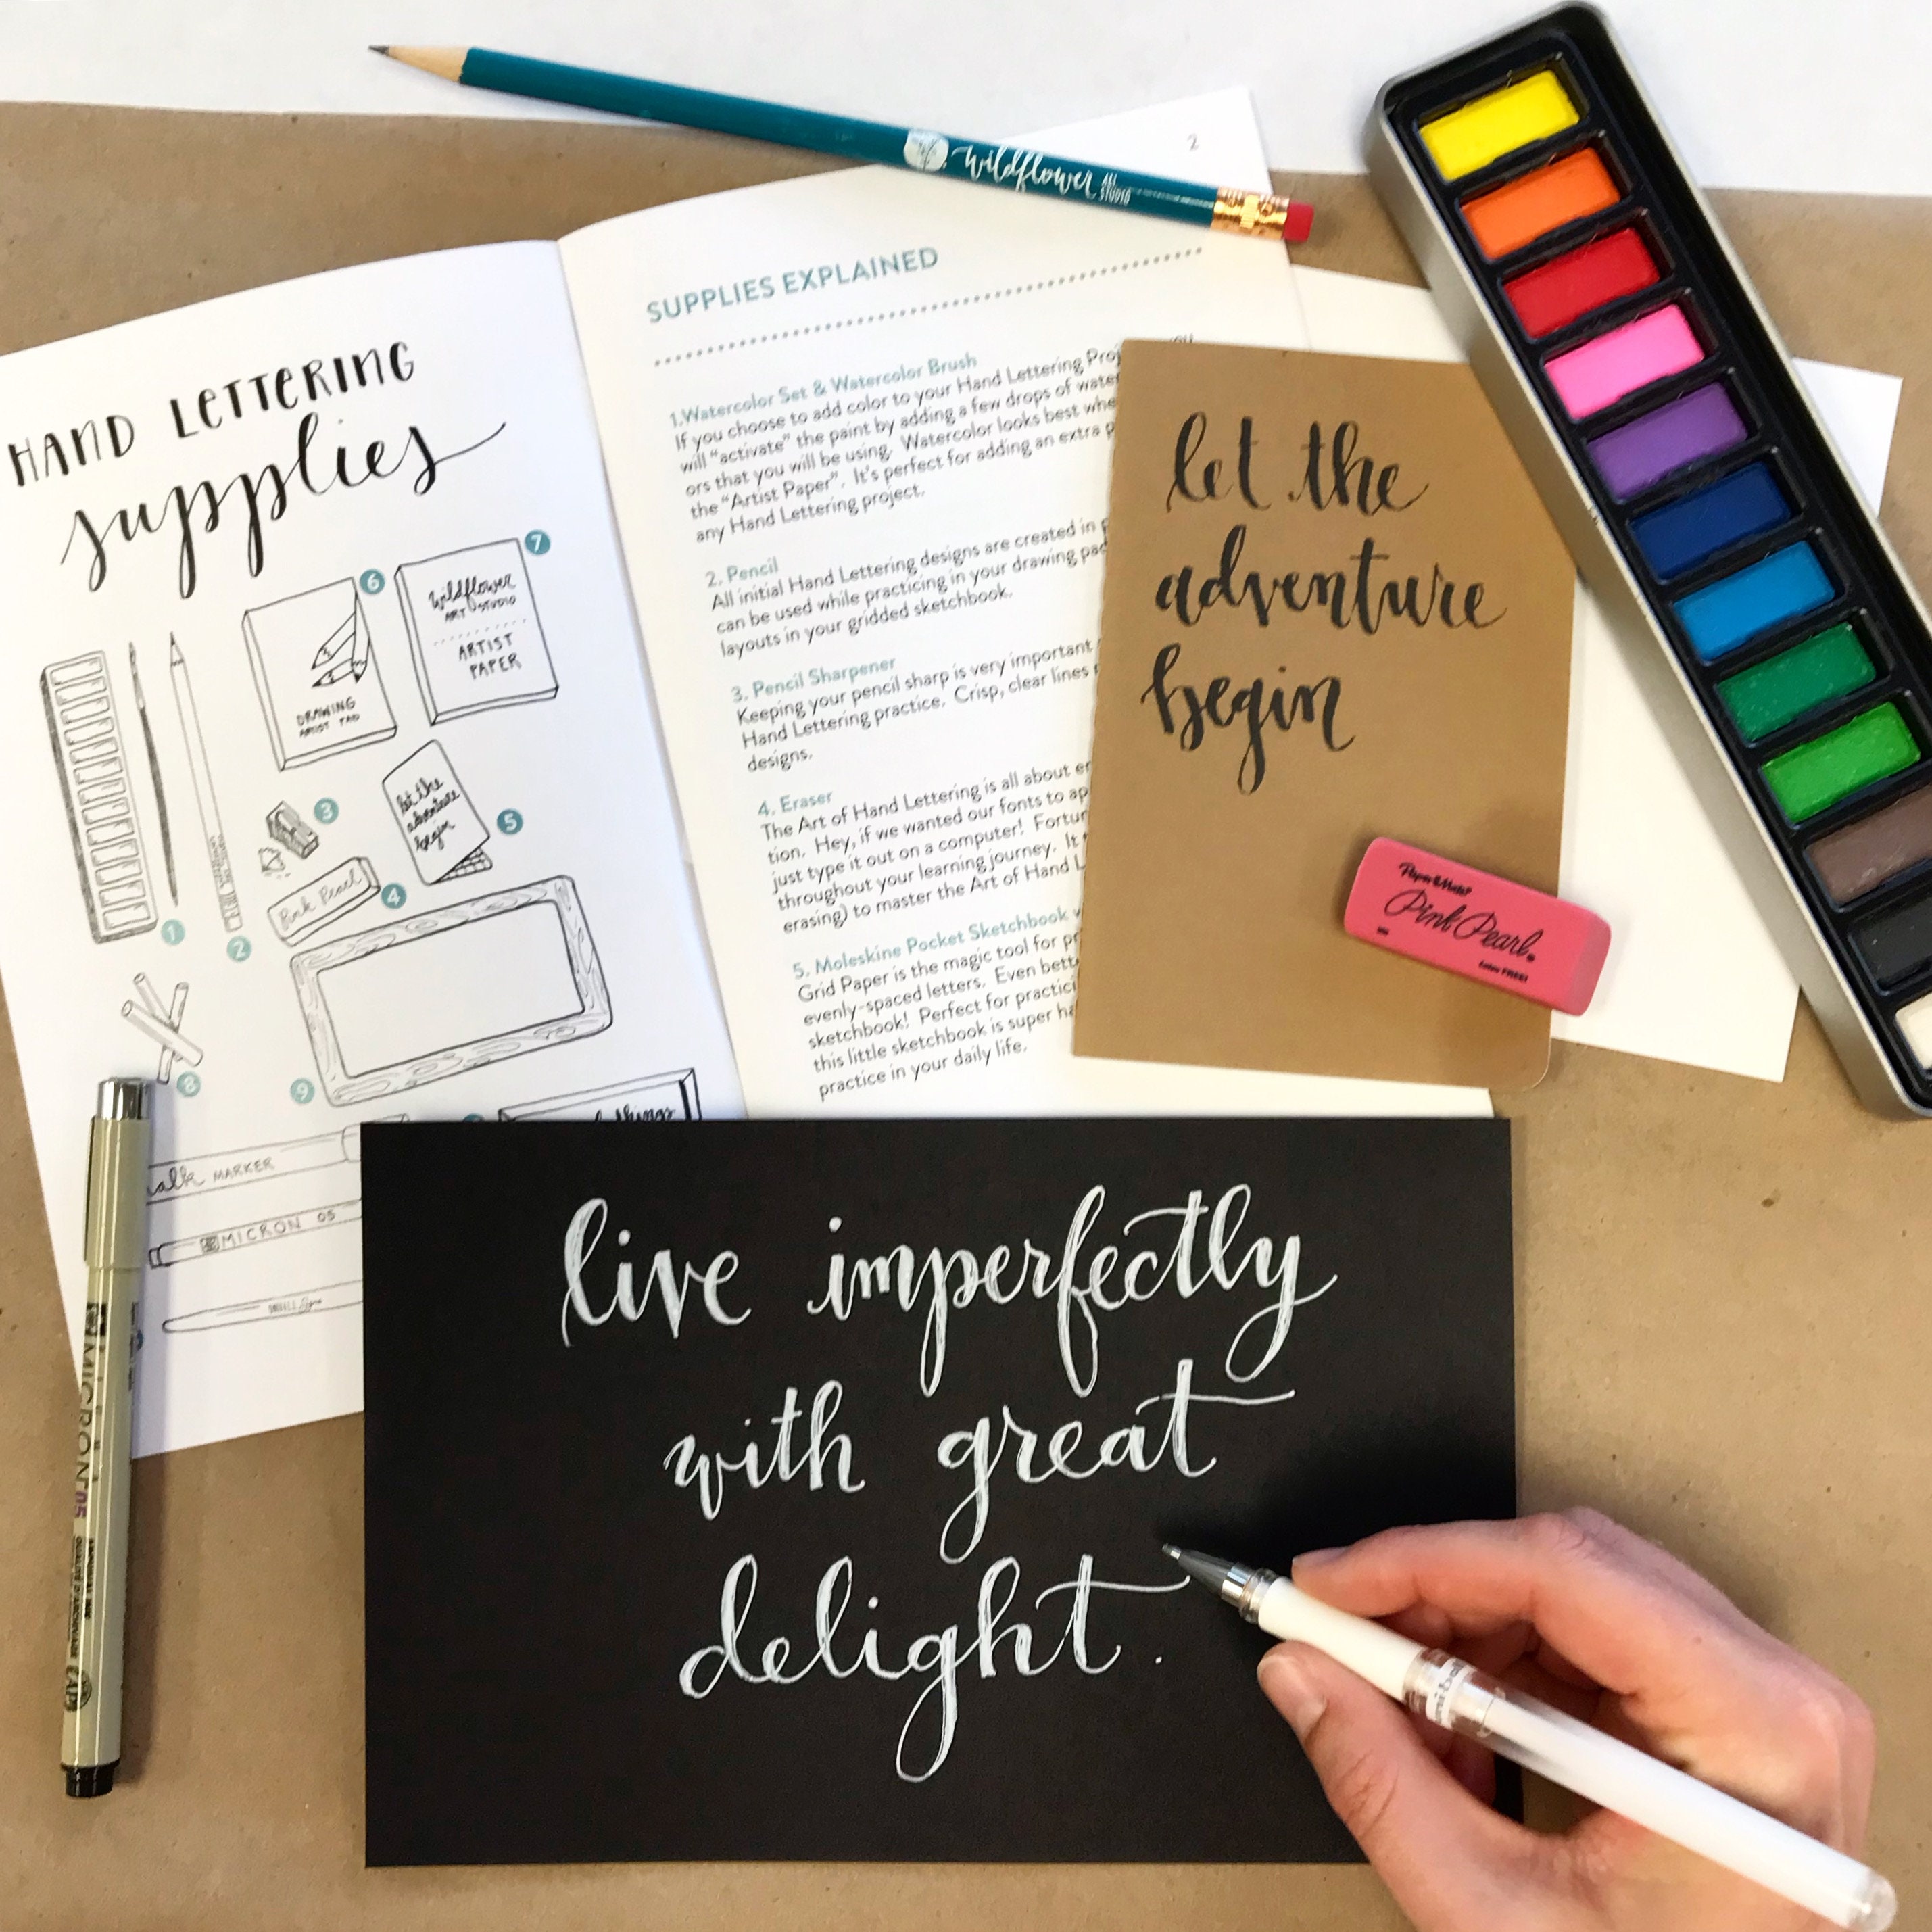 wildflower ART STUDIO
2
HAND LETTERING
supplies
7
6
wildflower
ART STUDIO
ARTIST
PAPER
DRAWING
ARTIST PAD
3
let the
adventure
begin
5
Pink Pearl
4
1
2
8
9
things
MARKER
MICRON 05
SUPPLIES EXPLAINED
1.Watercolor Set & Watercolor Brush
If you choose to add color to your Hand Lettering you
will “activate” the paint by adding a few drops of water
ors that you will be using. Watercolor looks best
the “Artist Paper”. It's perfect for adding an extra
any Hand Lettering project.
2. Pencil
All initial Hand Lettering designs are created in
can be used while practicing in your drawing pad
layouts in your gridded sketchbook.
3. Pencil Sharpener
Keeping your pencil sharp is very important
Hand Lettering practice. Crisp, clear lines
designs.
4. Eraser
The Art of Hand Lettering is all about
tion. Hey, if we wanted our fonts to
just type it out on a computer!
throughout your learning journey. It
erasing) to master the Art of Hand
5. Moleskine Pocket Sketchbook
Grid Paper is the magic tool for
evenly-spaced letters. Even
sketchbook! Perfect for
this little sketchbook is super
practice in your daily life.
let the
adventure
begin
Paper Mate
Pink Pearl
Latex FREE!
MICRON 05
live imperfectly
with great
delight.